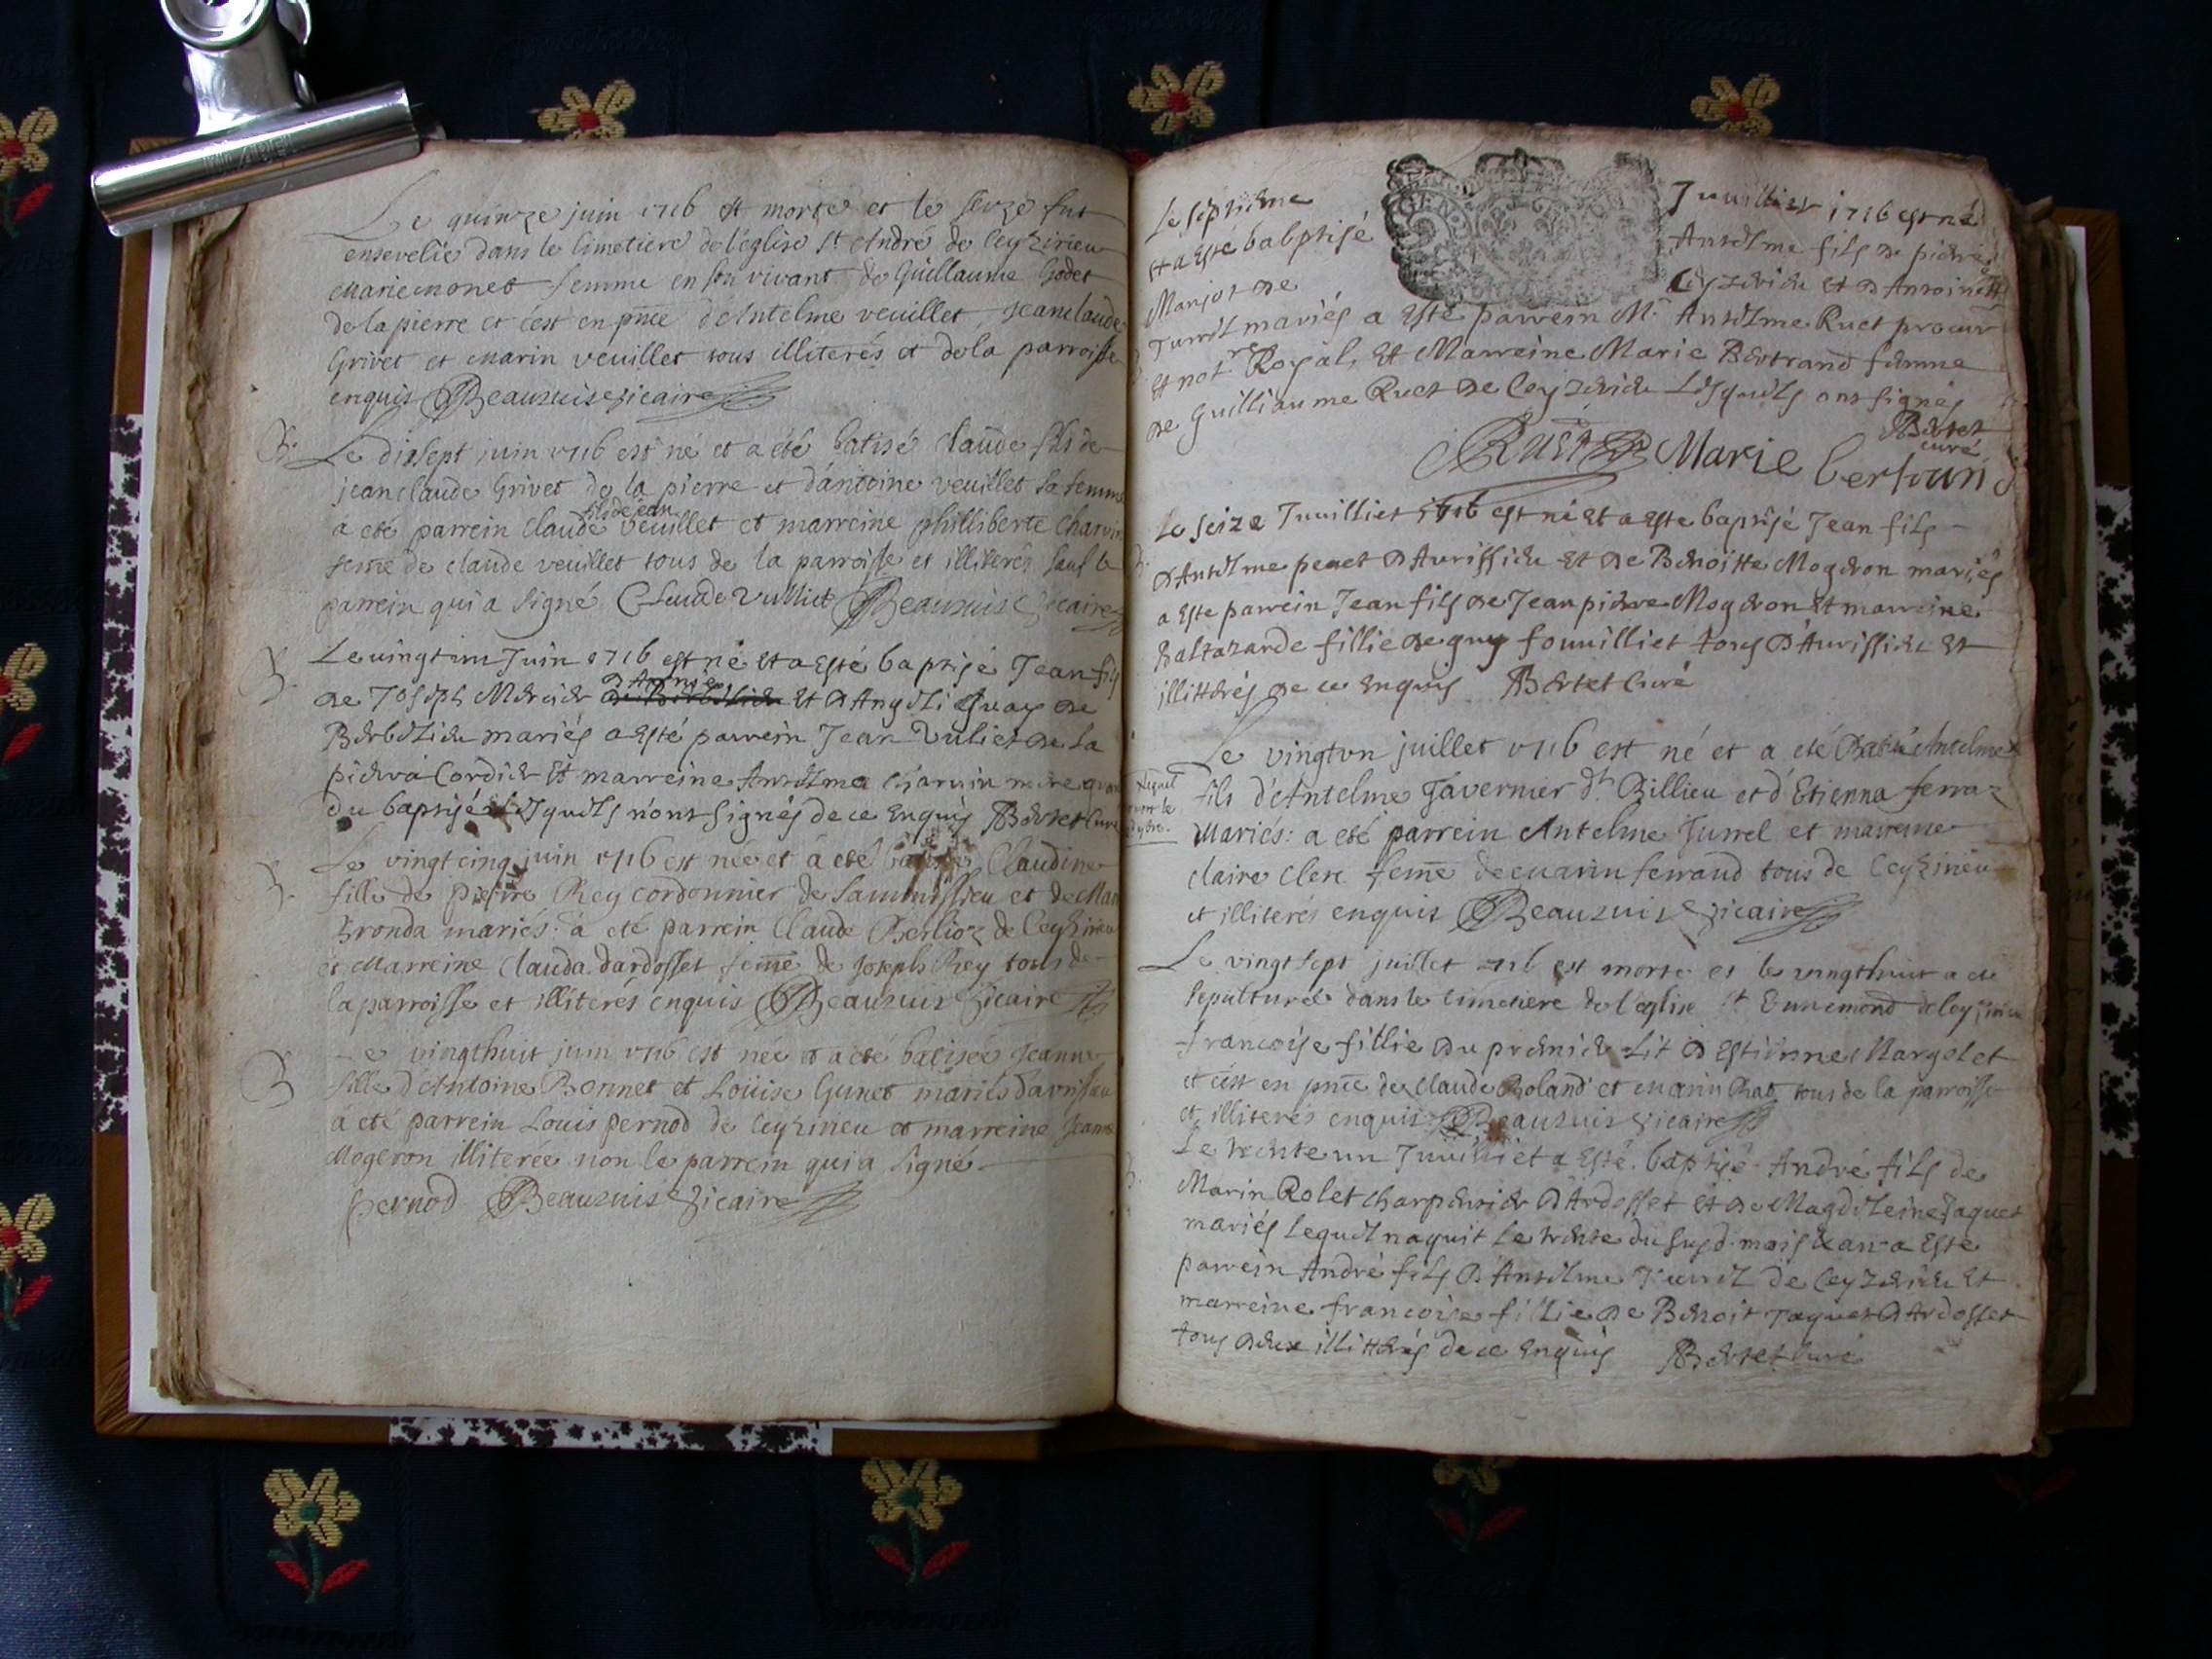 Le quinze juin 1716 est morte et le seize fut
ensevelie dans le cimetiere de l'eglise St André de Ceyzirieu
Marie monet femme en son vivant de Guillaume Godet
de la pierre et c'est en pnce d'Antelme veuillet, Jeanclaude
Grivet et marin veuillet tous illiterés et de la parroisse
enquis Beauvuis vicaire
B. Le dixsept juin 1716 est né et a eté batisé claude fils de
jeanclaude Grivet de la pierre et d'antoine veuillet sa femme
fils de jean
a eté parrein claude veuillet et marreine philliberte Charvin
feme de claude veuillet tous de la parroisse et illiterés sauf le
parrein qui a signé Claude Vulliet Beauvuis vicaire
B. Le vingtun Juin 1716 est né et a esté baptisé Jean fils
de Joseph Mercier et d'Angeli Guay de
Berbezieu mariés a esté parrein Jean Vuliet de la
pierre Cordier et marreine Antelma Charvin mere grand
du baptisé lesquels n'ont signés de ce enquis Bertet curé
B. Le vingtcinq juin 1716 est née et a eté batisée Claudine
fille de pierre Rey cordonnier de Sammissieu et de Mari
Bronda mariés: a eté parrein Claude Berlioz de Ceyzirieu
et Marreine Clauda dardosset feme de Joseph Rey tous de
la parroisse et illiterés enquis Beauvuis vicaire
B Le vingthuit juin 1716 est née et a eté batisée Jeanne
fille d'Antoine Bonnet et Loüise Gunet mariés d'avrissieu
a eté parrein Louis pernod de Ceyzirieu et marreine Jeanne
Mogeron illiterée non le parrein qui a signé
pernod Beauvuis vicaire
Le septieme Juuillier 1716 est né
et a esté babptisé Antelme fils de pierre
Marjot de Ceyzerieu et d'Antoinette
Turrel mariés a esté parrein Mr Antelme Ruet procur
et notre Royal, et Marreine Marie Bertrand femme
de Guilliaume Ruet de Ceyzerieu Lesquels ont signés
Bertet
curé
Ruet Marie bertran
B. Le seize Juuilliet 1716 est né et a este baptisé Jean fils
d'Antelme penet d'Aurissieu et de Benoitte Mogeron mariés
a este parrein Jean fils de Jean pierre Mogeron et marreine
Baltazarde fillie de guy fouuilliet tous d'Aurissieu et
illitterés de ce enquis Bertet Curé
Le vingtun juillet 1716 est né et a eté Batisé Antelme
fils d'Antelme Tavernier dt Billieu et d'Etienna ferraz
Mariés: a eté parrein Antelme Turrel et marreine
claire Clerc feme de marin ferraud tous de Ceyzirieu
et illiterés enquis Beauvuis vicaire
Le vingtsept juillet 1716 est morte et le vingthuit a eté
sepulturée dans le cimetiere de l'eglise St Ennemond de Ceyzirieu
francoise fillie du premier Lit d'Estienne Margolet
et c'est en pnce de Claude Roland et marin Chat, tous de la parroisse
et illiterés enquis Beauvuis vicaire
B. Le trente un Juuilliet a esté baptisé André fils de
Marin Rolet charpentier d'Ardosset et de Magdeleine Jaquet
mariés lequel naquit le trente du susd. mois & an a este
parrein André fils d'Antelme Turrel de Ceyzerieu et
marreine francoise fillie de Benoit Jaquet d'Ardosset
tous deux illitterés de ce enquis Bertet Curé